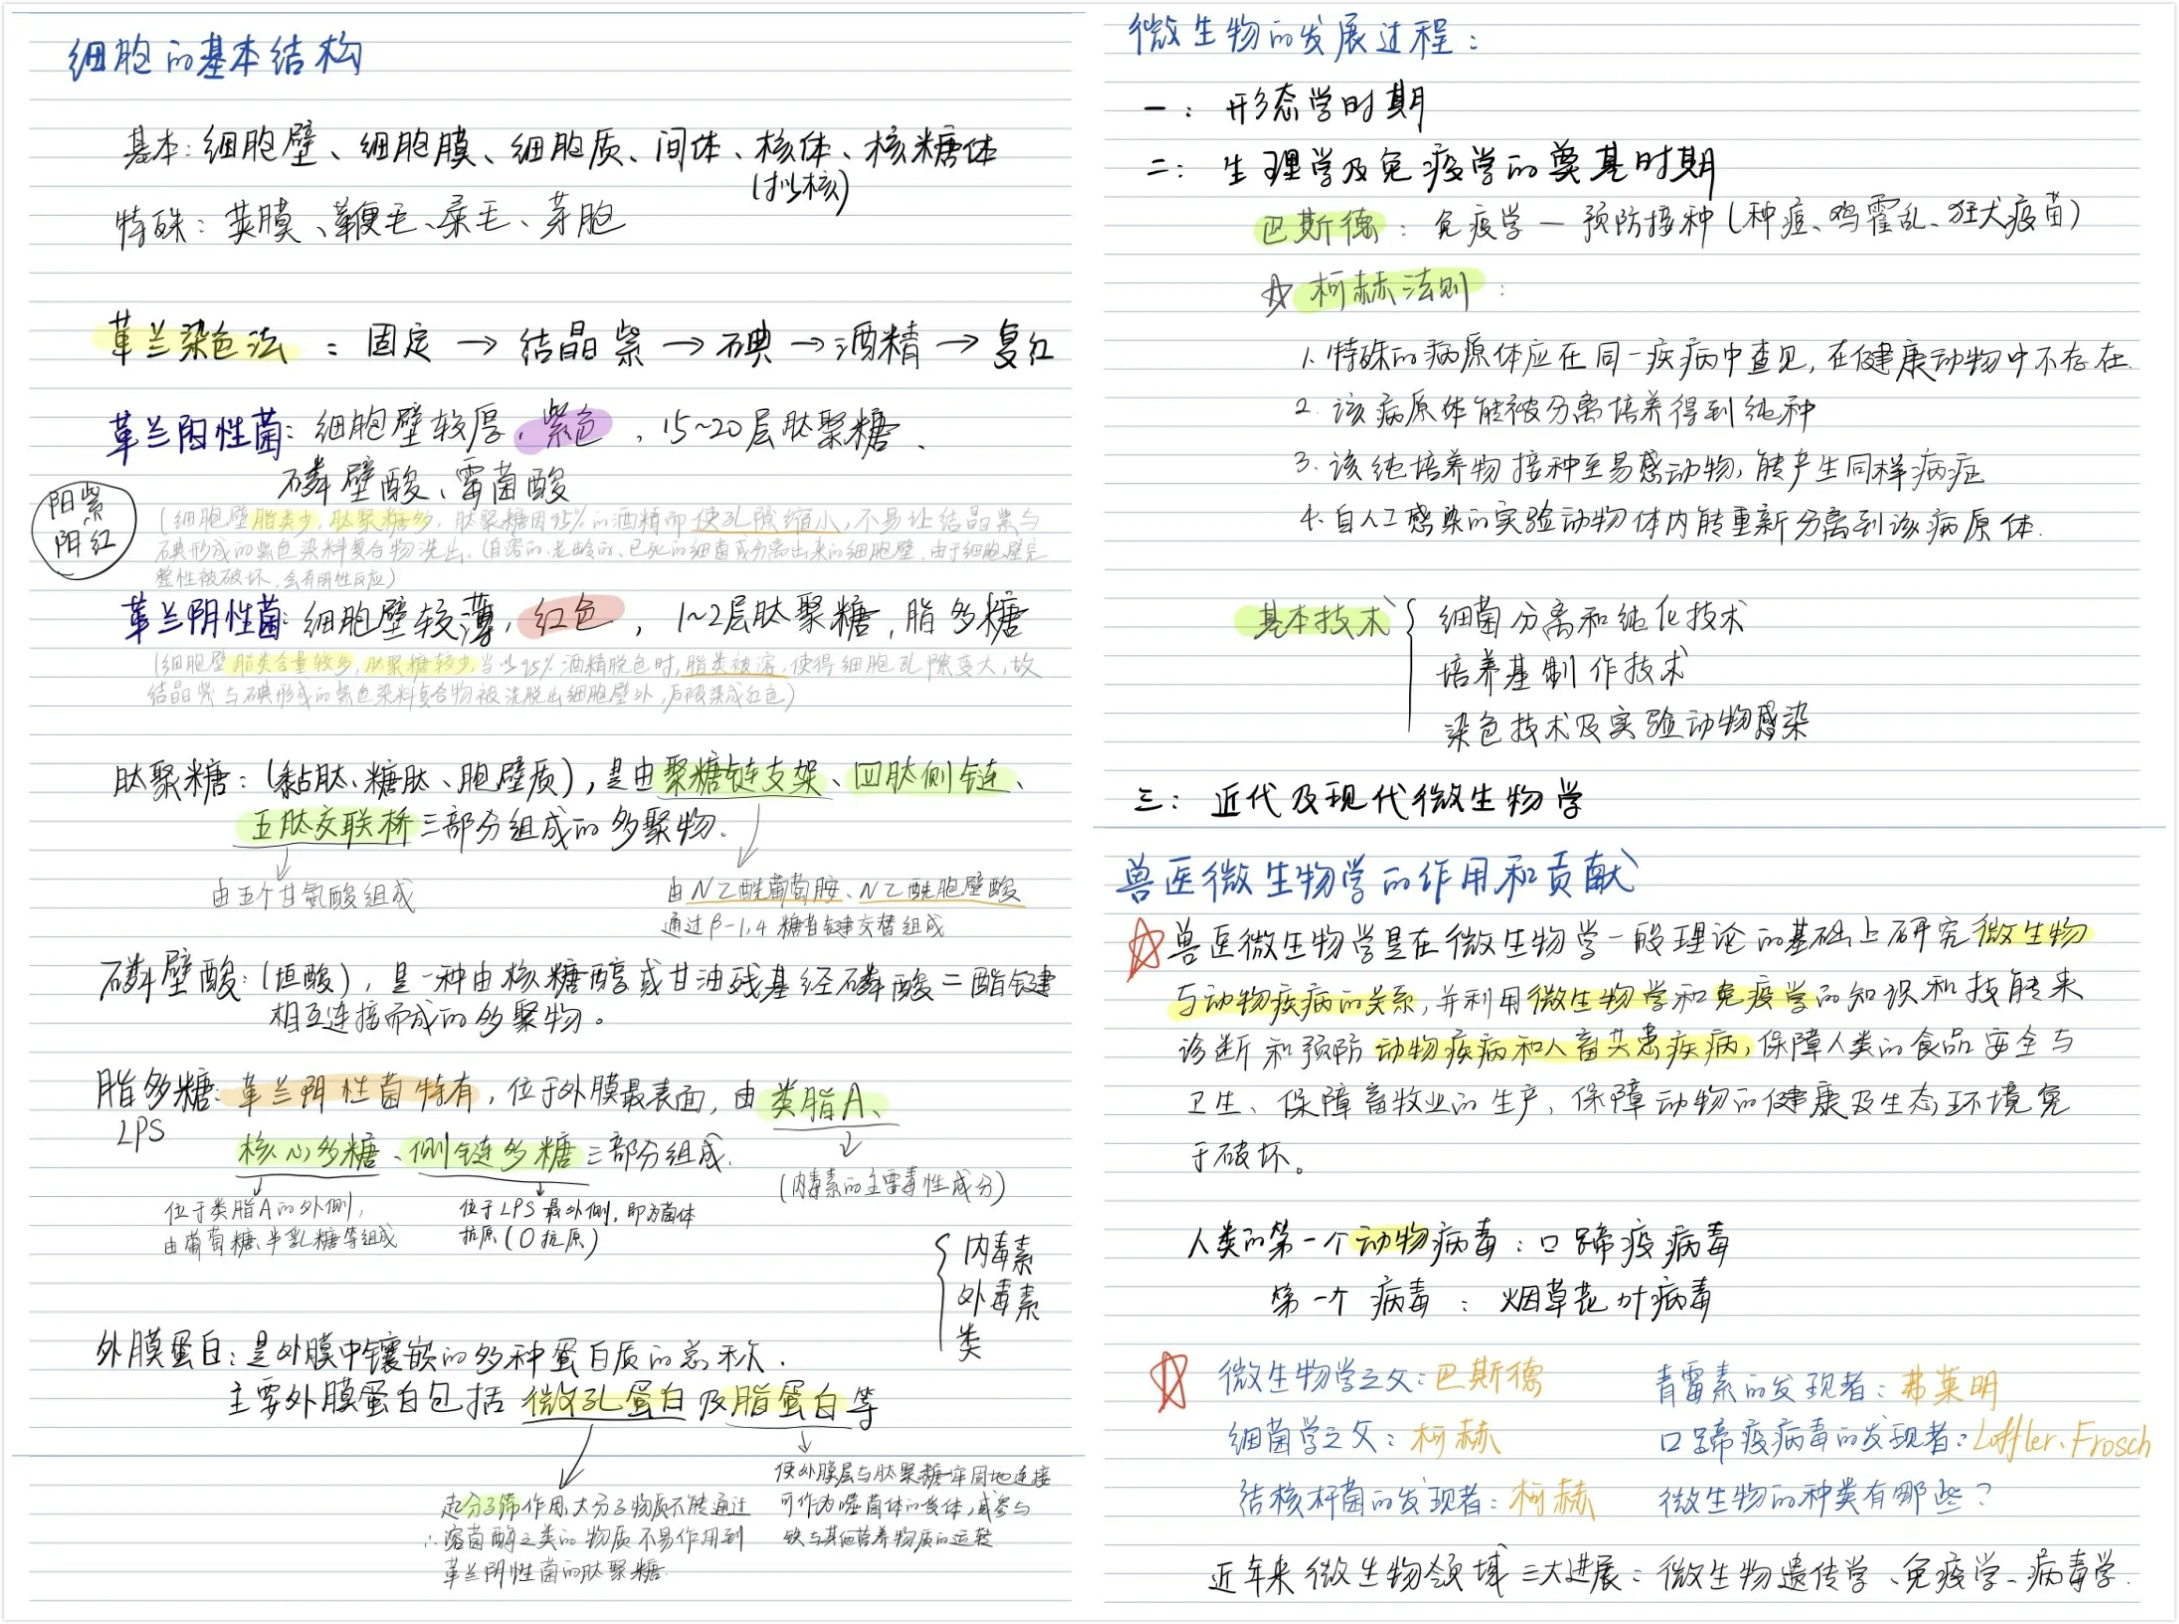 细胞的基本结构
基本：细胞壁、细胞膜、细胞质、间体、核体、核糖体
(拟核)
特殊：荚膜、鞭毛、菌毛、芽胞
革兰染色法：固定→结晶紫→碘→酒精→复红
革兰阳性菌：细胞壁较厚，紫色，15~20层肽聚糖、
磷壁酸、霉菌酸
阳紫
阴红
(细胞壁脂类少，肽聚糖多，肽聚糖因95%的酒精而使孔隙缩小，不易让结晶紫与
碘形成的紫色染料复合物洗出。(自溶的、老龄的、已死的细菌或分离出来的细胞壁，由于细胞壁完
整性被破坏，会有阴性反应)
革兰阴性菌：细胞壁较薄，红色，1~2层肽聚糖，脂多糖
(细胞壁脂类含量较多，肽聚糖较少，当以95%酒精脱色时，脂类被溶，使得细胞孔隙变大，故
结晶紫与碘形成的紫色染料复合物被洗脱出细胞壁外，后被染成红色)
肽聚糖：(黏肽、糖肽、胞壁质)，是由聚糖链支架、四肽侧链、
五肽交联桥三部分组成的多聚物.
由五个甘氨酸组成
由N乙酰葡萄胺、N乙酰胞壁酸
通过β-1,4糖苷键交替组成
磷壁酸：(垣酸)，是一种由核糖醇或甘油残基经磷酸二酯键
相互连接而成的多聚物。
脂多糖：革兰阴性菌特有，位于外膜最表面，由类脂A、
LPS
核心多糖、侧链多糖三部分组成.
(内毒素的主要毒性成分)
位于类脂A的外侧，
由葡萄糖、半乳糖等组成
位于LPS最外侧，即为菌体
抗原(O抗原)
内毒素
外毒素
类
外膜蛋白：是外膜中镶嵌的多种蛋白质的总称.
主要外膜蛋白包括微孔蛋白及脂蛋白等
起分子筛作用，大分子物质不能通过
∴溶菌酶之类的物质不易作用到
革兰阴性菌的肽聚糖
使外膜层与肽聚糖牢固地连接
可作为噬菌体的受体，或参与
铁与其他营养物质的运转
微生物的发展过程：
一：形态学时期
二：生理学及免疫学的奠基时期
巴斯德：免疫学—预防接种(种痘、鸡霍乱、狂犬疫苗)
☆柯赫法则：
1. 特殊的病原体应在同一疾病中查见，在健康动物中不存在.
2. 该病原体能被分离培养得到纯种
3. 该纯培养物接种至易感动物，能产生同样病症
4. 自人工感染的实验动物体内能重新分离到该病原体.
基本技术
细菌分离和纯化技术
培养基制作技术
染色技术及实验动物感染
三：近代及现代微生物学
兽医微生物学的作用和贡献
☆兽医微生物学是在微生物学一般理论的基础上研究微生物
与动物疾病的关系，并利用微生物学和免疫学的知识和技能来
诊断和预防动物疾病和人畜共患疾病，保障人类的食品安全与
卫生、保障畜牧业的生产，保障动物的健康及生态环境免
于破坏。
人类的第一个动物病毒：口蹄疫病毒
第一个病毒：烟草花叶病毒
☆微生物学之父：巴斯德 青霉素的发现者：弗莱明
细菌学之父：柯赫 口蹄疫病毒的发现者：Loffler、Frosch
结核杆菌的发现者：柯赫 微生物的种类有哪些？
近年来微生物领域三大进展：微生物遗传学、免疫学、病毒学.